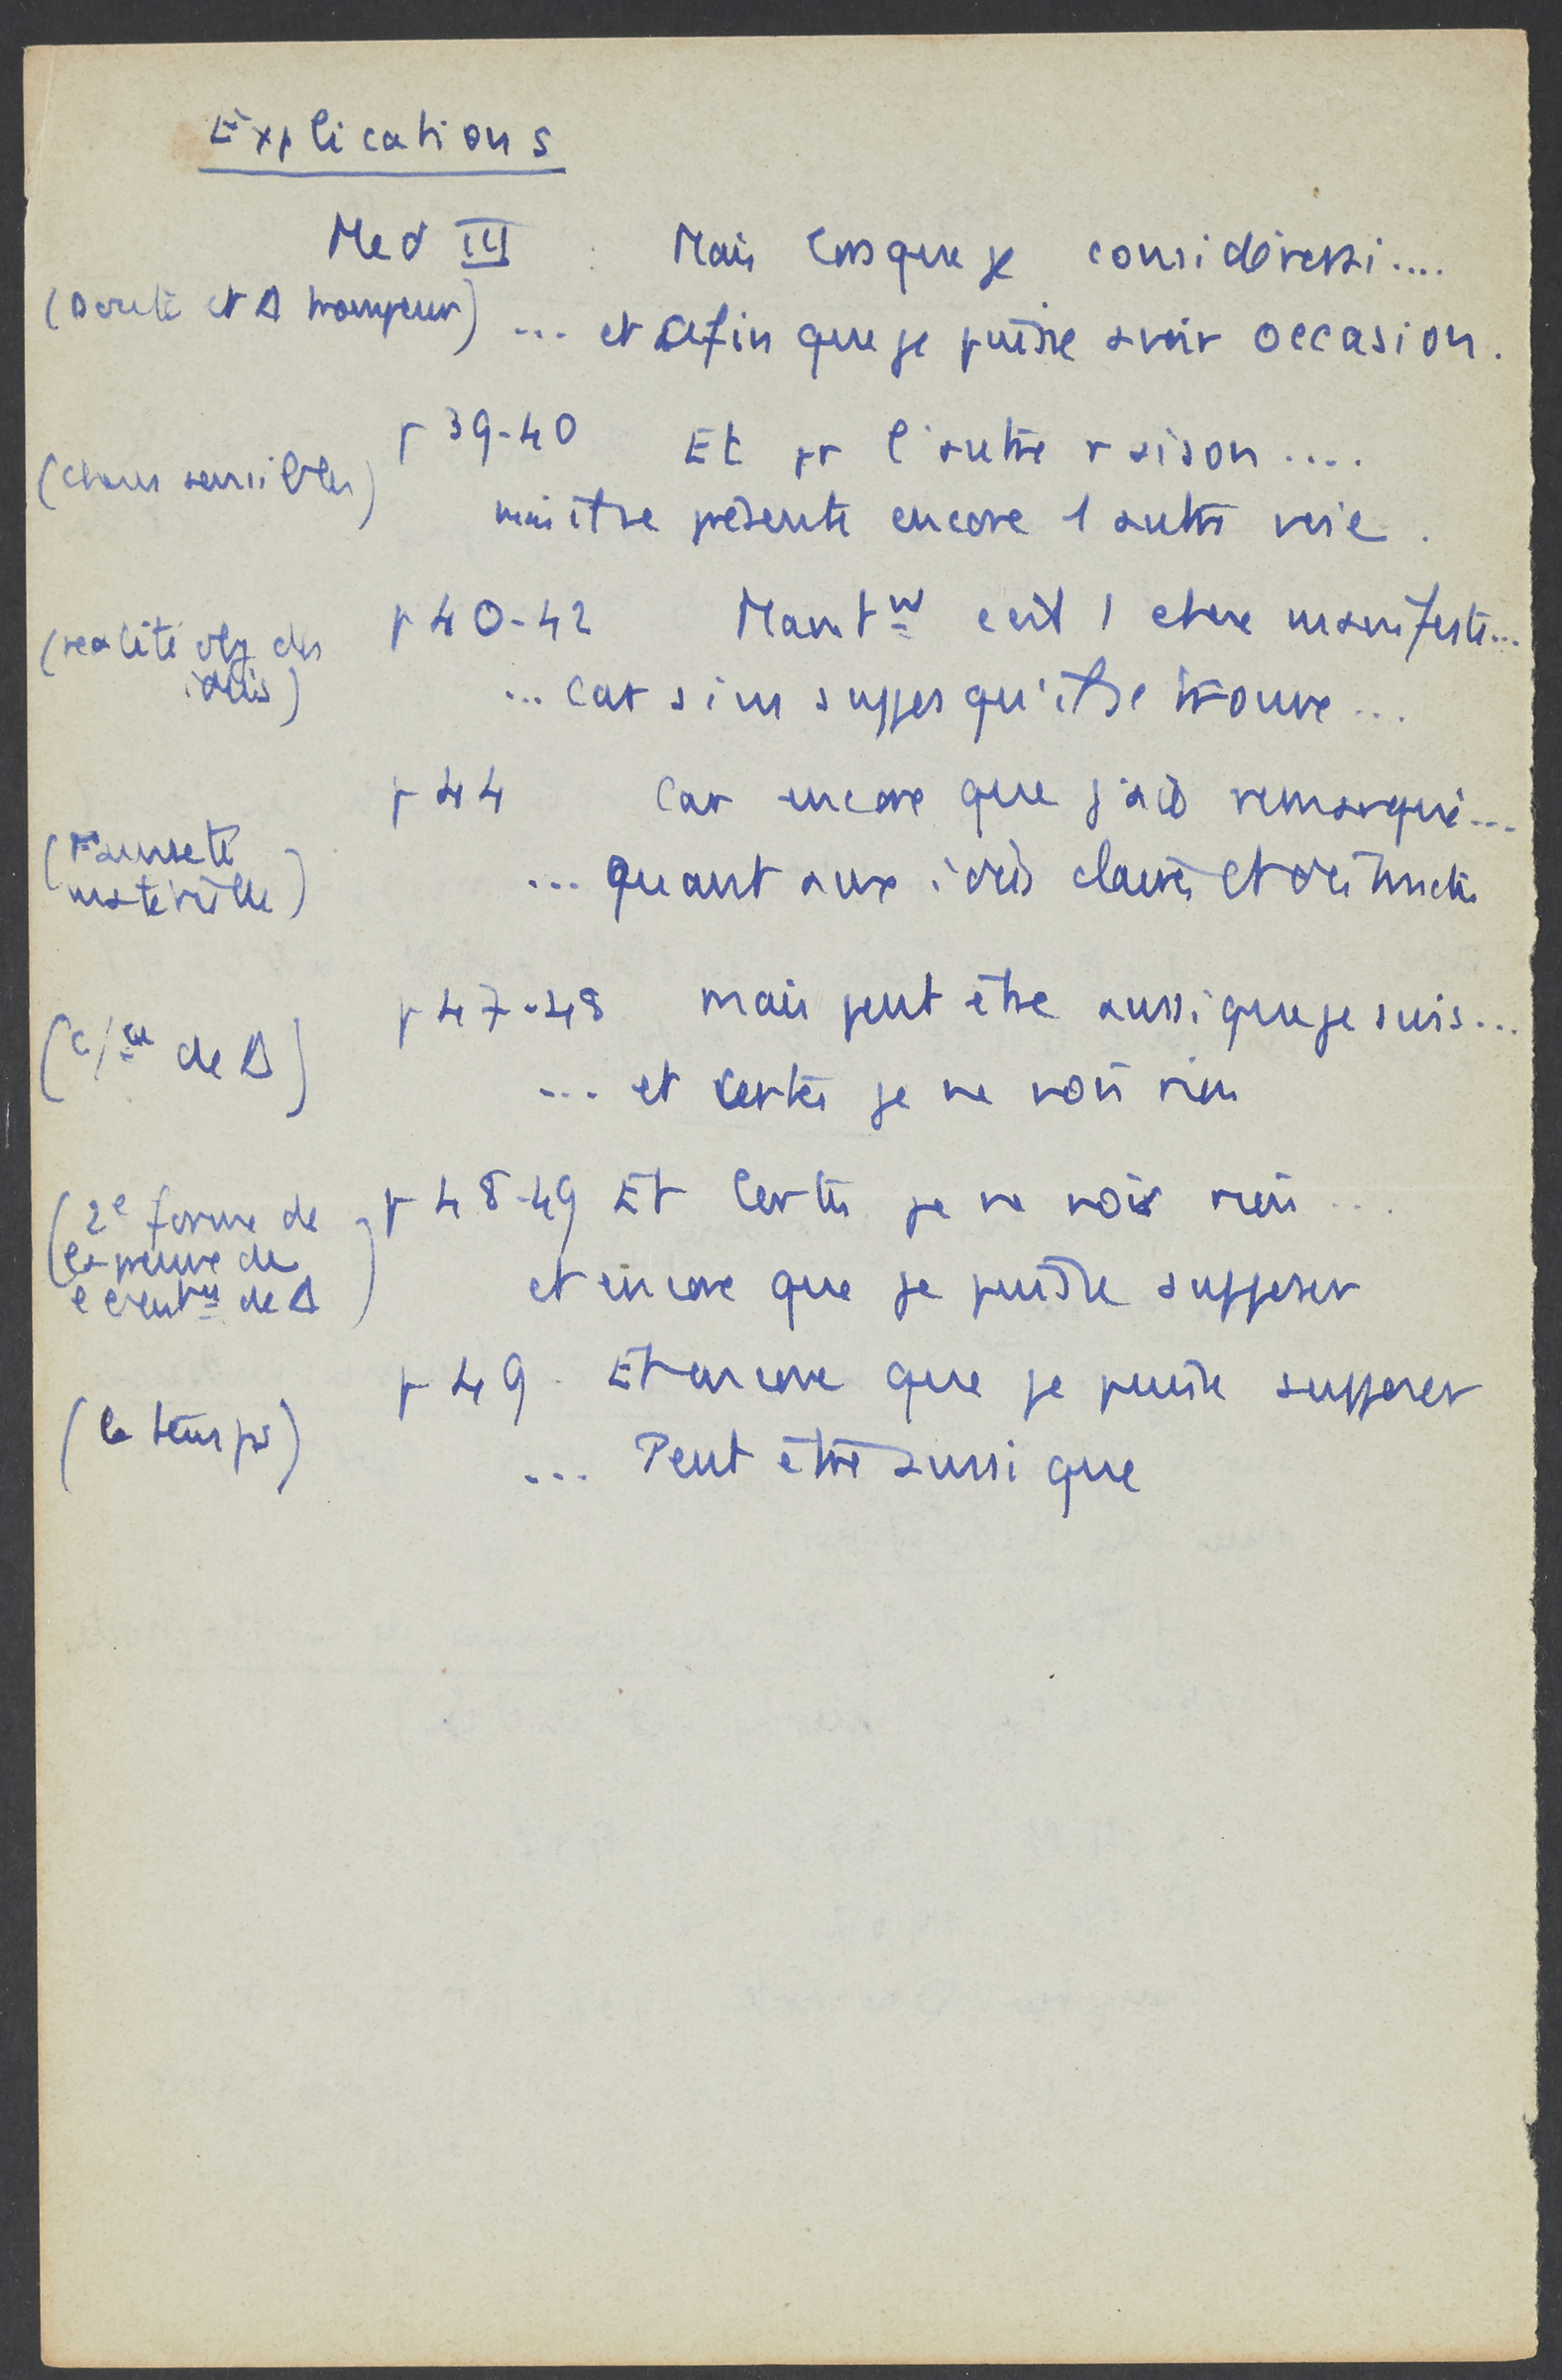 Explications
Med III : Mais lorsque je considérais....
(Doute et Δ trompeur) ... et afin que je puisse avoir occasion.
p 39-40 Et pr l'autre raison....
(choses sensibles)
mais il se présente encore 1 autre voie.
p 40-42 Maintnt c'est 1 chose manifeste...
(realité obj des
idées) ... car si ns supposons qu'il se trouve...
p 44 Car encore que j'aie remarqué...
(Fausseté
matérielle) ... quant aux idées claires et distinctes
p 47-48 mais peut être aussi que je suis...
(c/ce de Δ)
... et certes je ne vois rien
p 48-49 Et Certes je ne vois rien...
(2e forme de
la preuve de
l'exist de Δ) et encore que je puisse supposer
p 49. Et encore que je puisse supposer
(le temps)
... Peut être aussi que